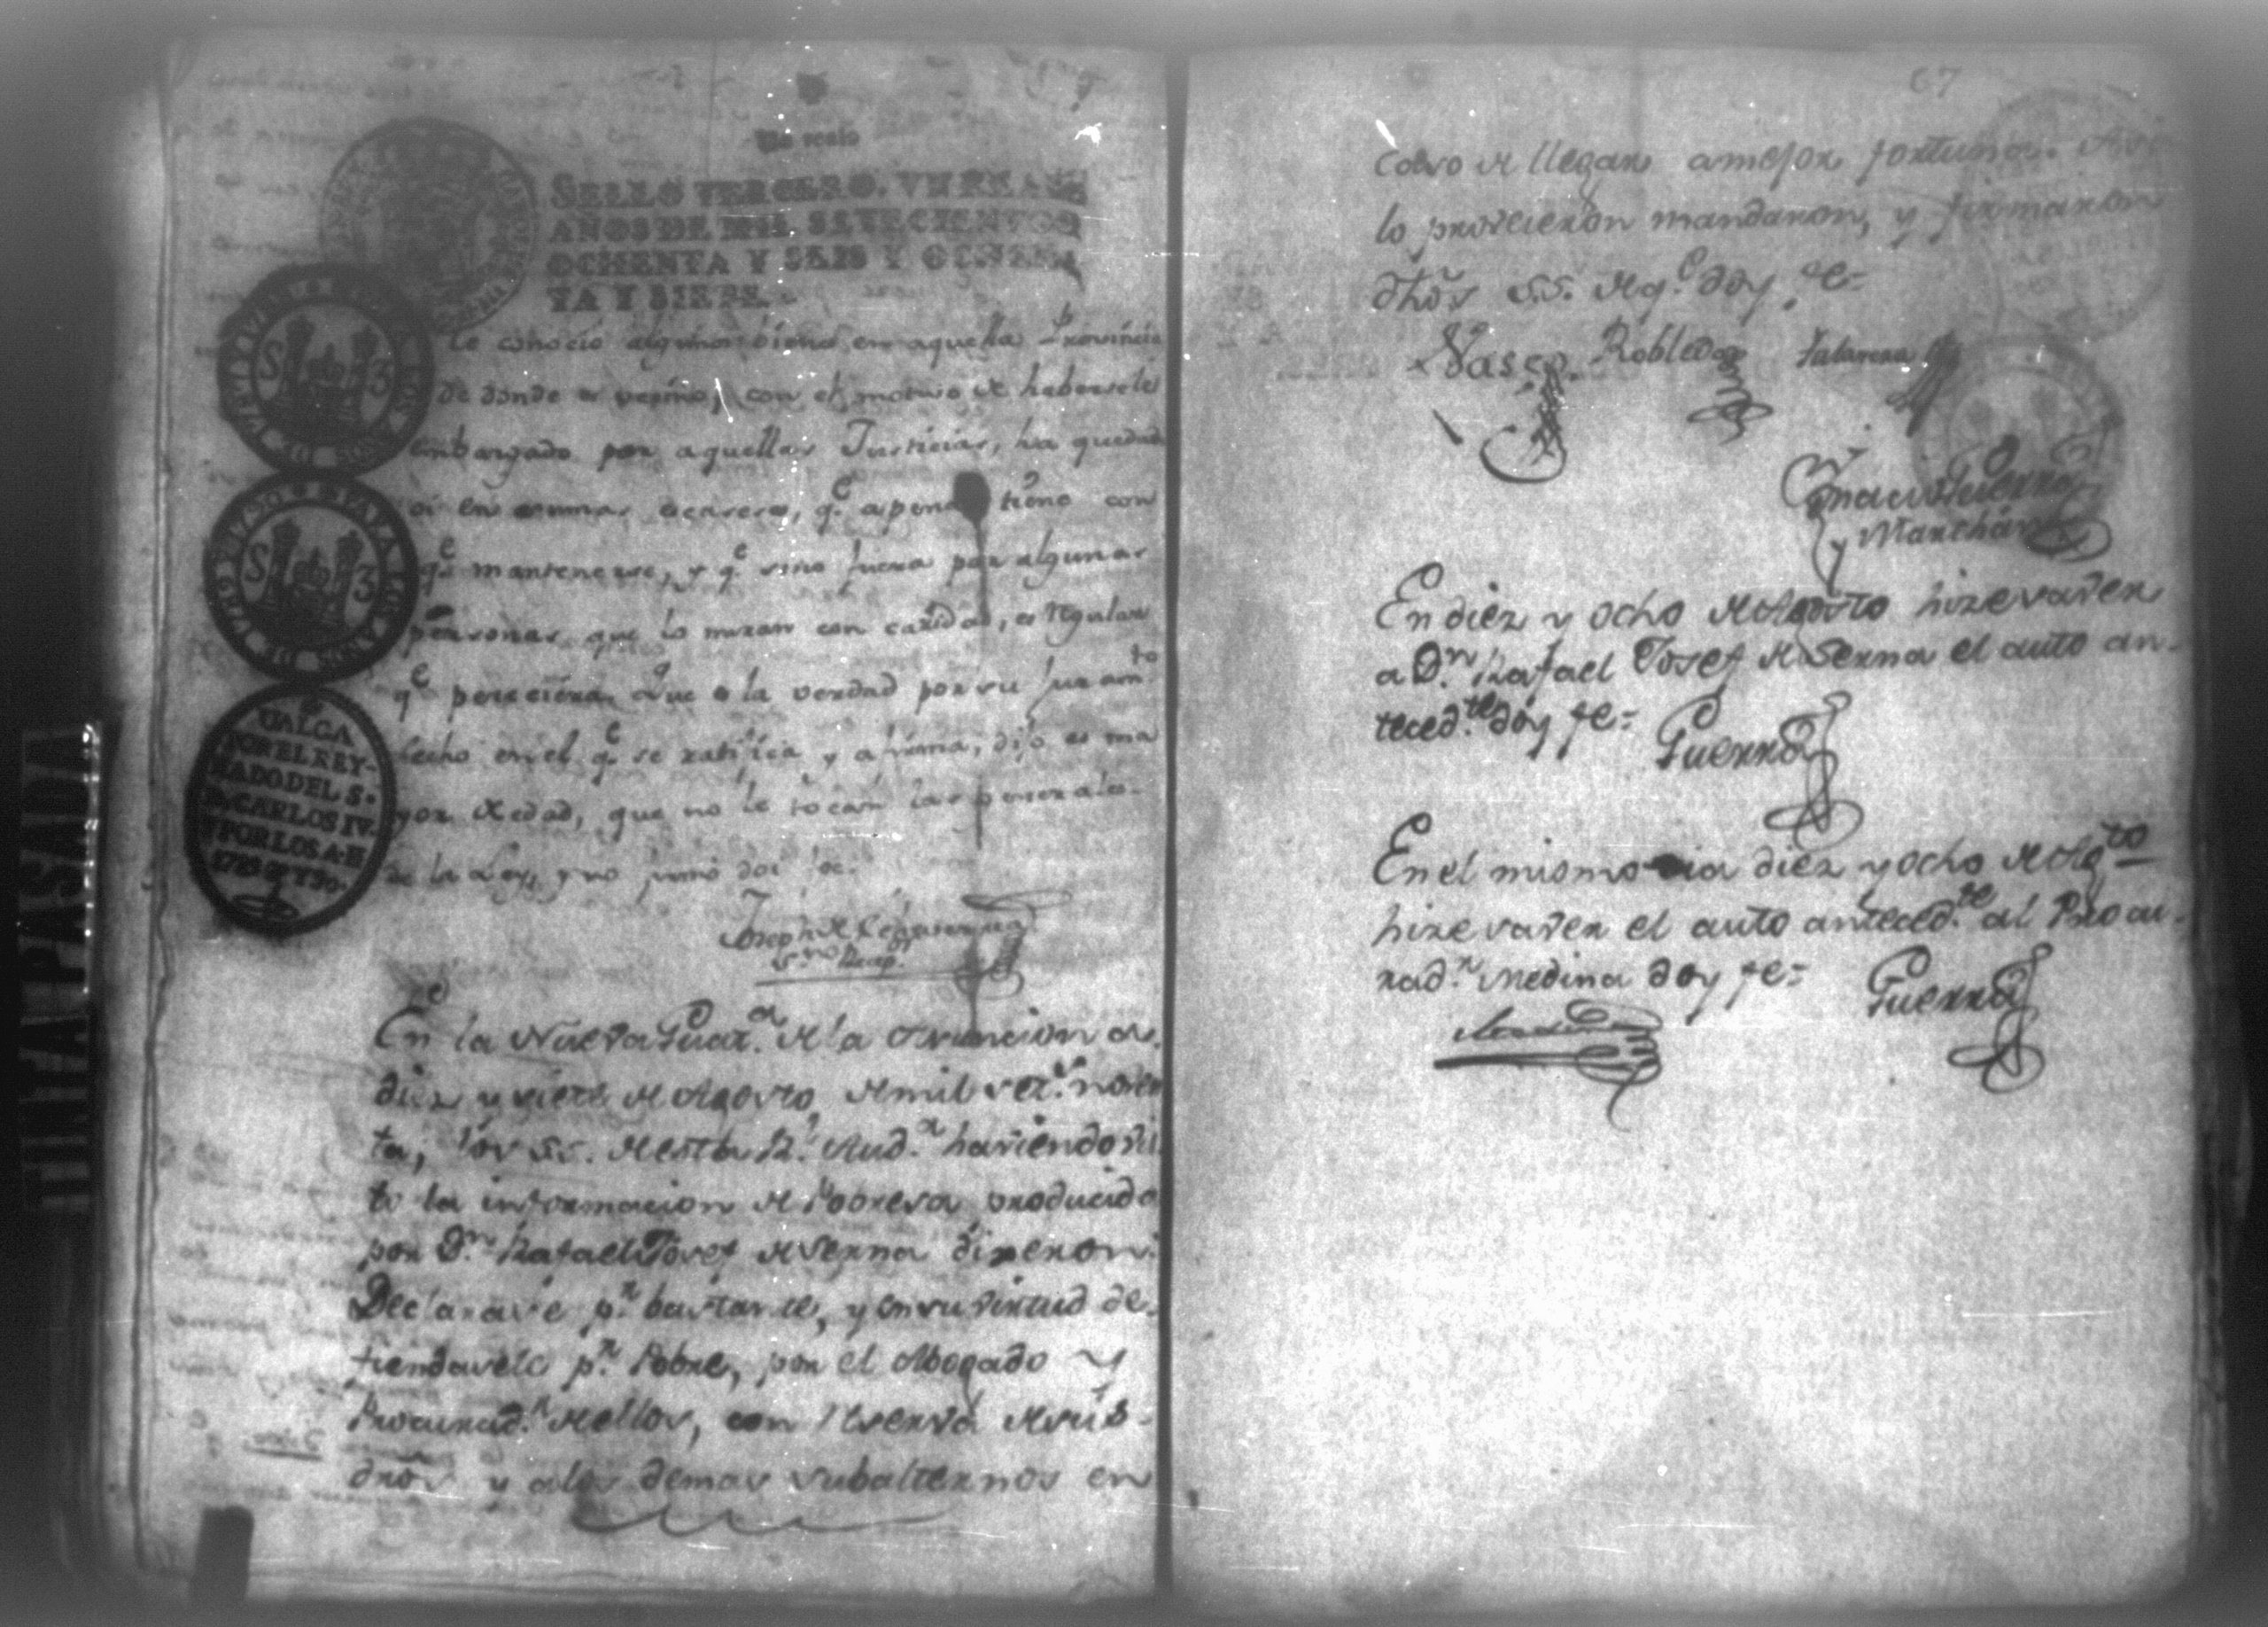 Un real
SELLO TERCERO. UN REAL,
AÑOS DE MIL SETECIENTOS
OCHENTA Y SEIS Y OCHEN-
TA Y SIETE.
S 3
S 3
VALGA
POR EL REY-
NADO DEL S.
D. CARLOS IV.
Y POR LOS A. D.
1789 Y 90.
le conocio algunos bienes en aquella Provincia
de donde es vezino, con el motivo de habersele
embargado por aquellas Justicias, ha quedado
en suma, qe. apenas tiene con
qe. mantenerse, y qe. sino fuera por algunas
personas que lo miran con caridad, es regular
qe. pereciera. Que es la verdad por su juramto.
hecho en el qe. se ratifica y afirma, dijo es ma
yor de edad, que no le tocan las generales
de la Ley, y no firmó doi fe.
Joseph de
Sno. Recep.
En la Nueva Guata. de la Asuncion a
diez y siete de Agosto de mil setos. noven
ta; los SS. de esta Rl. Auda. haviendo vis
to la informacion de Pobreza producida
por Dn. Rafael Josef de Serna dixeron:
Declarase pr. bastante, y en su virtud de-
fiendasele pr. Pobre, por el Abogado y
Procuradr. de ellos, con reserva de sus
dros. y a los demas subalternos en
67
caso de llegar a mejor fortuna. Asi
lo proveieron mandaron, y firmaron
dhos SS. de qe. doy fe=
Vasco. Robledo Talavera
Ignacio Guerra
y Marchán
En diez y ocho de Agosto hize saver
a Dn. Rafael Josef de Serna el auto an-
tecedte. doy fe= Guerra
En el mismo dia diez y ocho de Agto
hize saver el auto antecedte. al Procu-
radr. Medina doy fe= Guerra
Medina